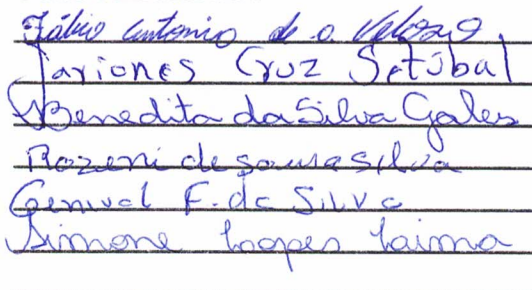 Fábio Antonio de O. Veloso
Jariones Cruz Setúbal
Benedita da Silva Gales
Rozeni de sousa silva
Genival F. da Silva
Simone Lopes Laima